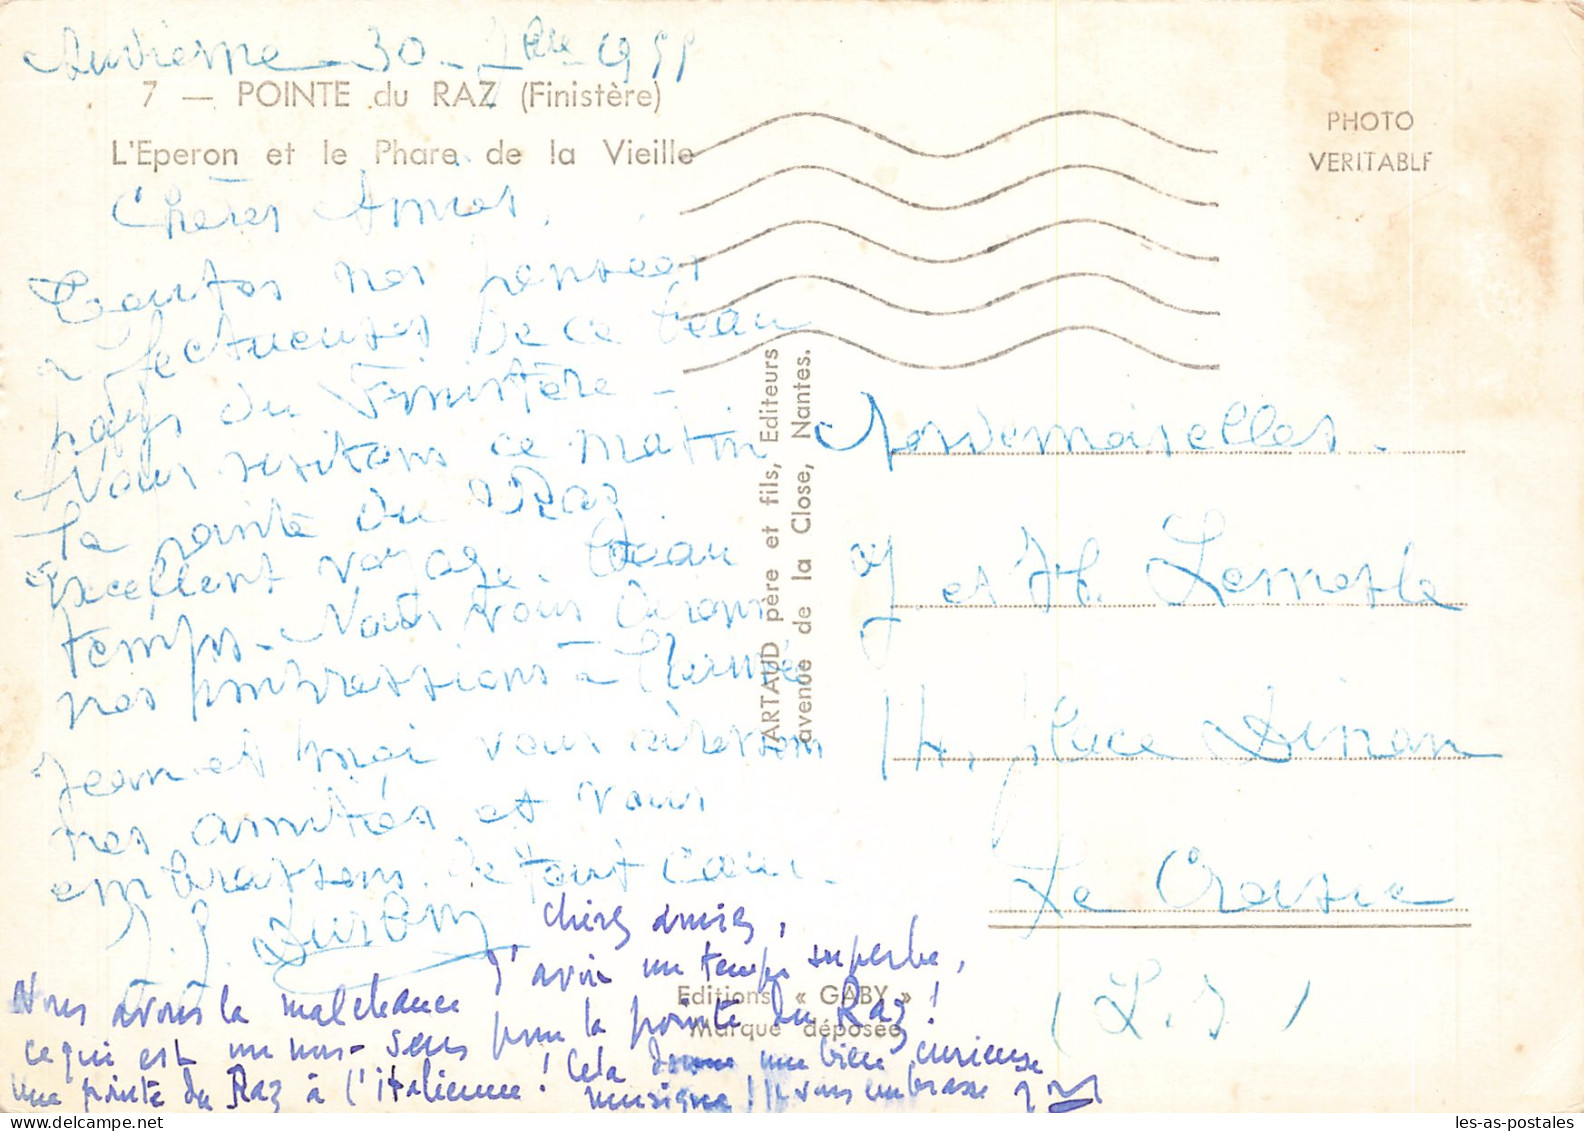 Audierne - 30 - 7bre 1955
7 — POINTE du RAZ (Finistère)
L'Eperon et le Phare de la Vieille
PHOTO
VERITABLE
Chères Amies,
Toutes nos pensées
affectueuses de ce beau
pays du Finistère -
Nous visitons ce matin
la pointe du Raz
excellent voyage. beau
temps - Nous vous dirons
nos impressions à l'arrivée
Jean et moi vous adressons
nos amitiés et vous
embrassons de tout coeur.
J. J.
chères amies,
Nous avons la malchance d'avoir un temps superbe,
ce qui est un non-sens pour la pointe du Raz !
une pointe du Raz à l'italienne ! Cela donne une bien curieuse
musique ! Je vous embrasse
ARTAUD père et fils, Editeurs
avenue de la Close, Nantes.
Editions « GABY »
Marque déposée
Mesdemoiselles
J. et H. Lemesle
14, place Dinan
Le Croisic
(L. I)
les-as-postales